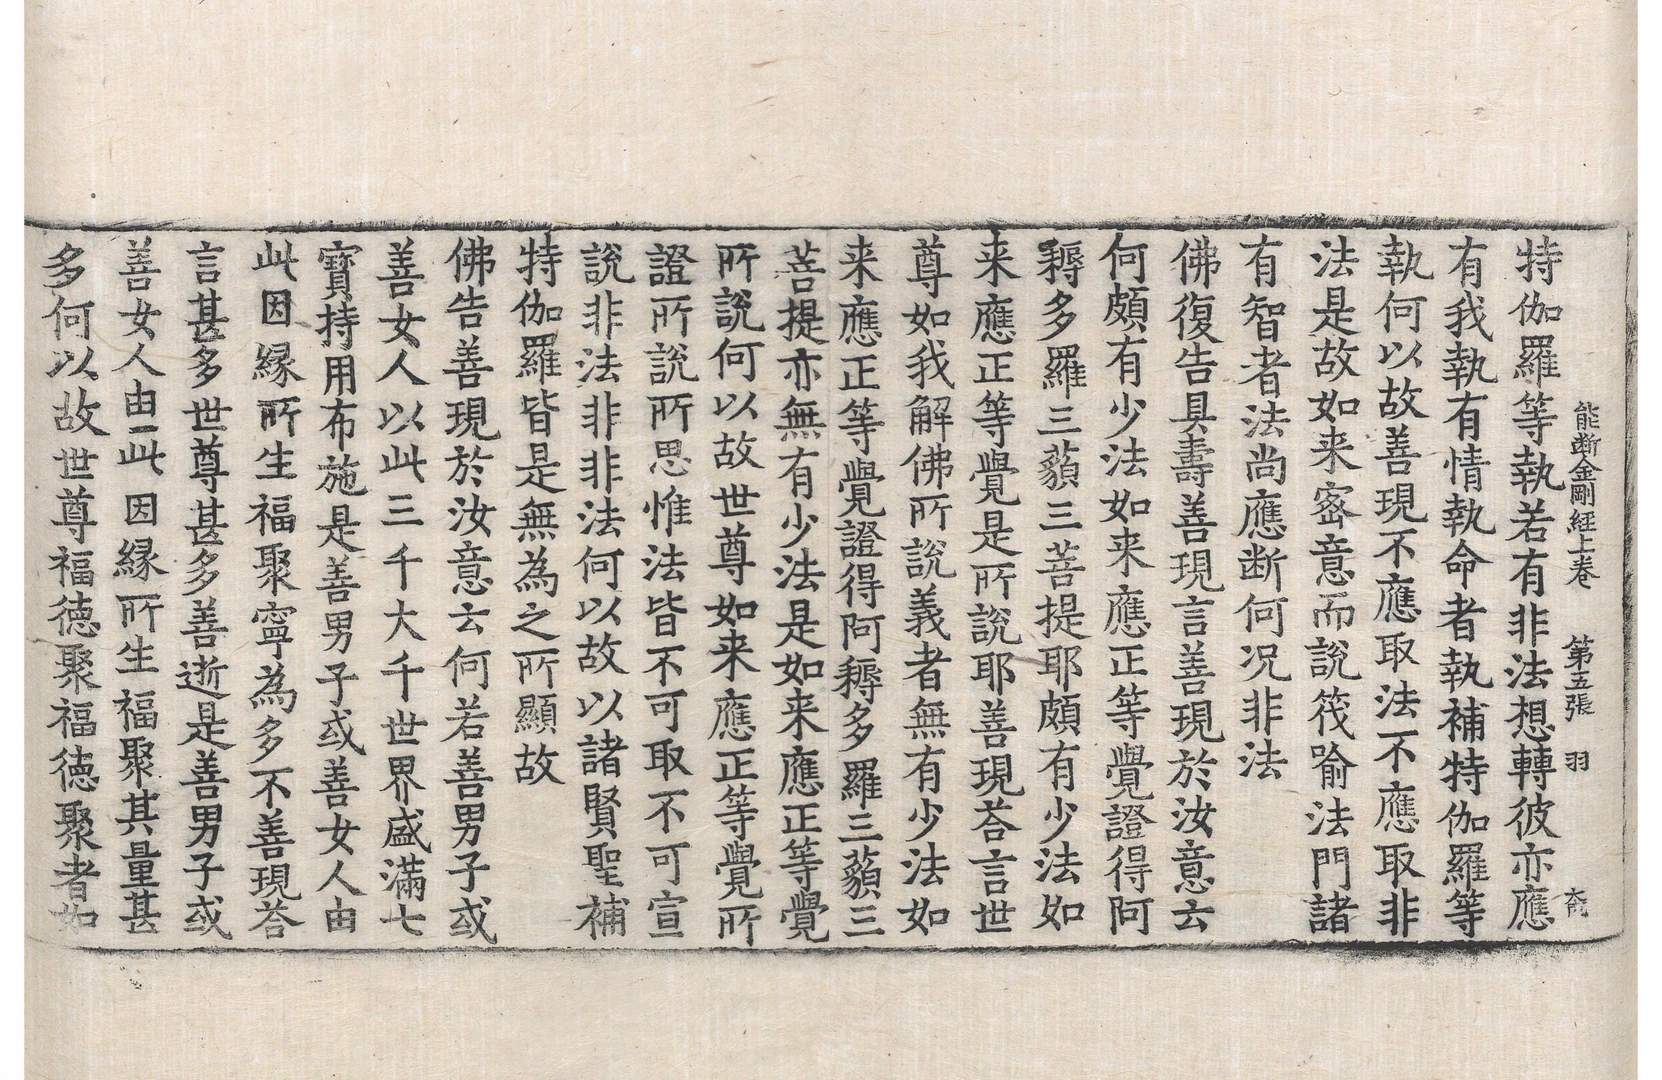 能断金剛經上卷　第五張　羽
特伽羅等執若有非法想轉彼亦應
有我執有情執命者執補特伽羅等
執何以故善現不應取法不應取非
法是故如来密意而說筏喻法門諸
有智者法尚應断何况非法
佛復告具壽善現言善現於汝意云
何頗有少法如来應正等覺證得阿
耨多羅三藐三菩提耶頗有少法如
来應正等覺是所說耶善現荅言世
尊如我解佛所說義者無有少法如
来應正等覺證得阿耨多羅三藐三
菩提亦無有少法是如来應正等覺
所說何以故世尊如来應正等覺所
證所說所思惟法皆不可取不可宣
說非法非非法何以故以諸賢聖補
特伽羅皆是無為之所顯故
佛告善現於汝意云何若善男子或
善女人以此三千大千世界盛滿七
寶持用布施是善男子或善女人由
此因緣所生福聚寧為多不善現荅
言甚多世尊甚多善逝是善男子或
善女人由此因緣所生福聚其量甚
多何以故世尊福徳聚福徳聚者如